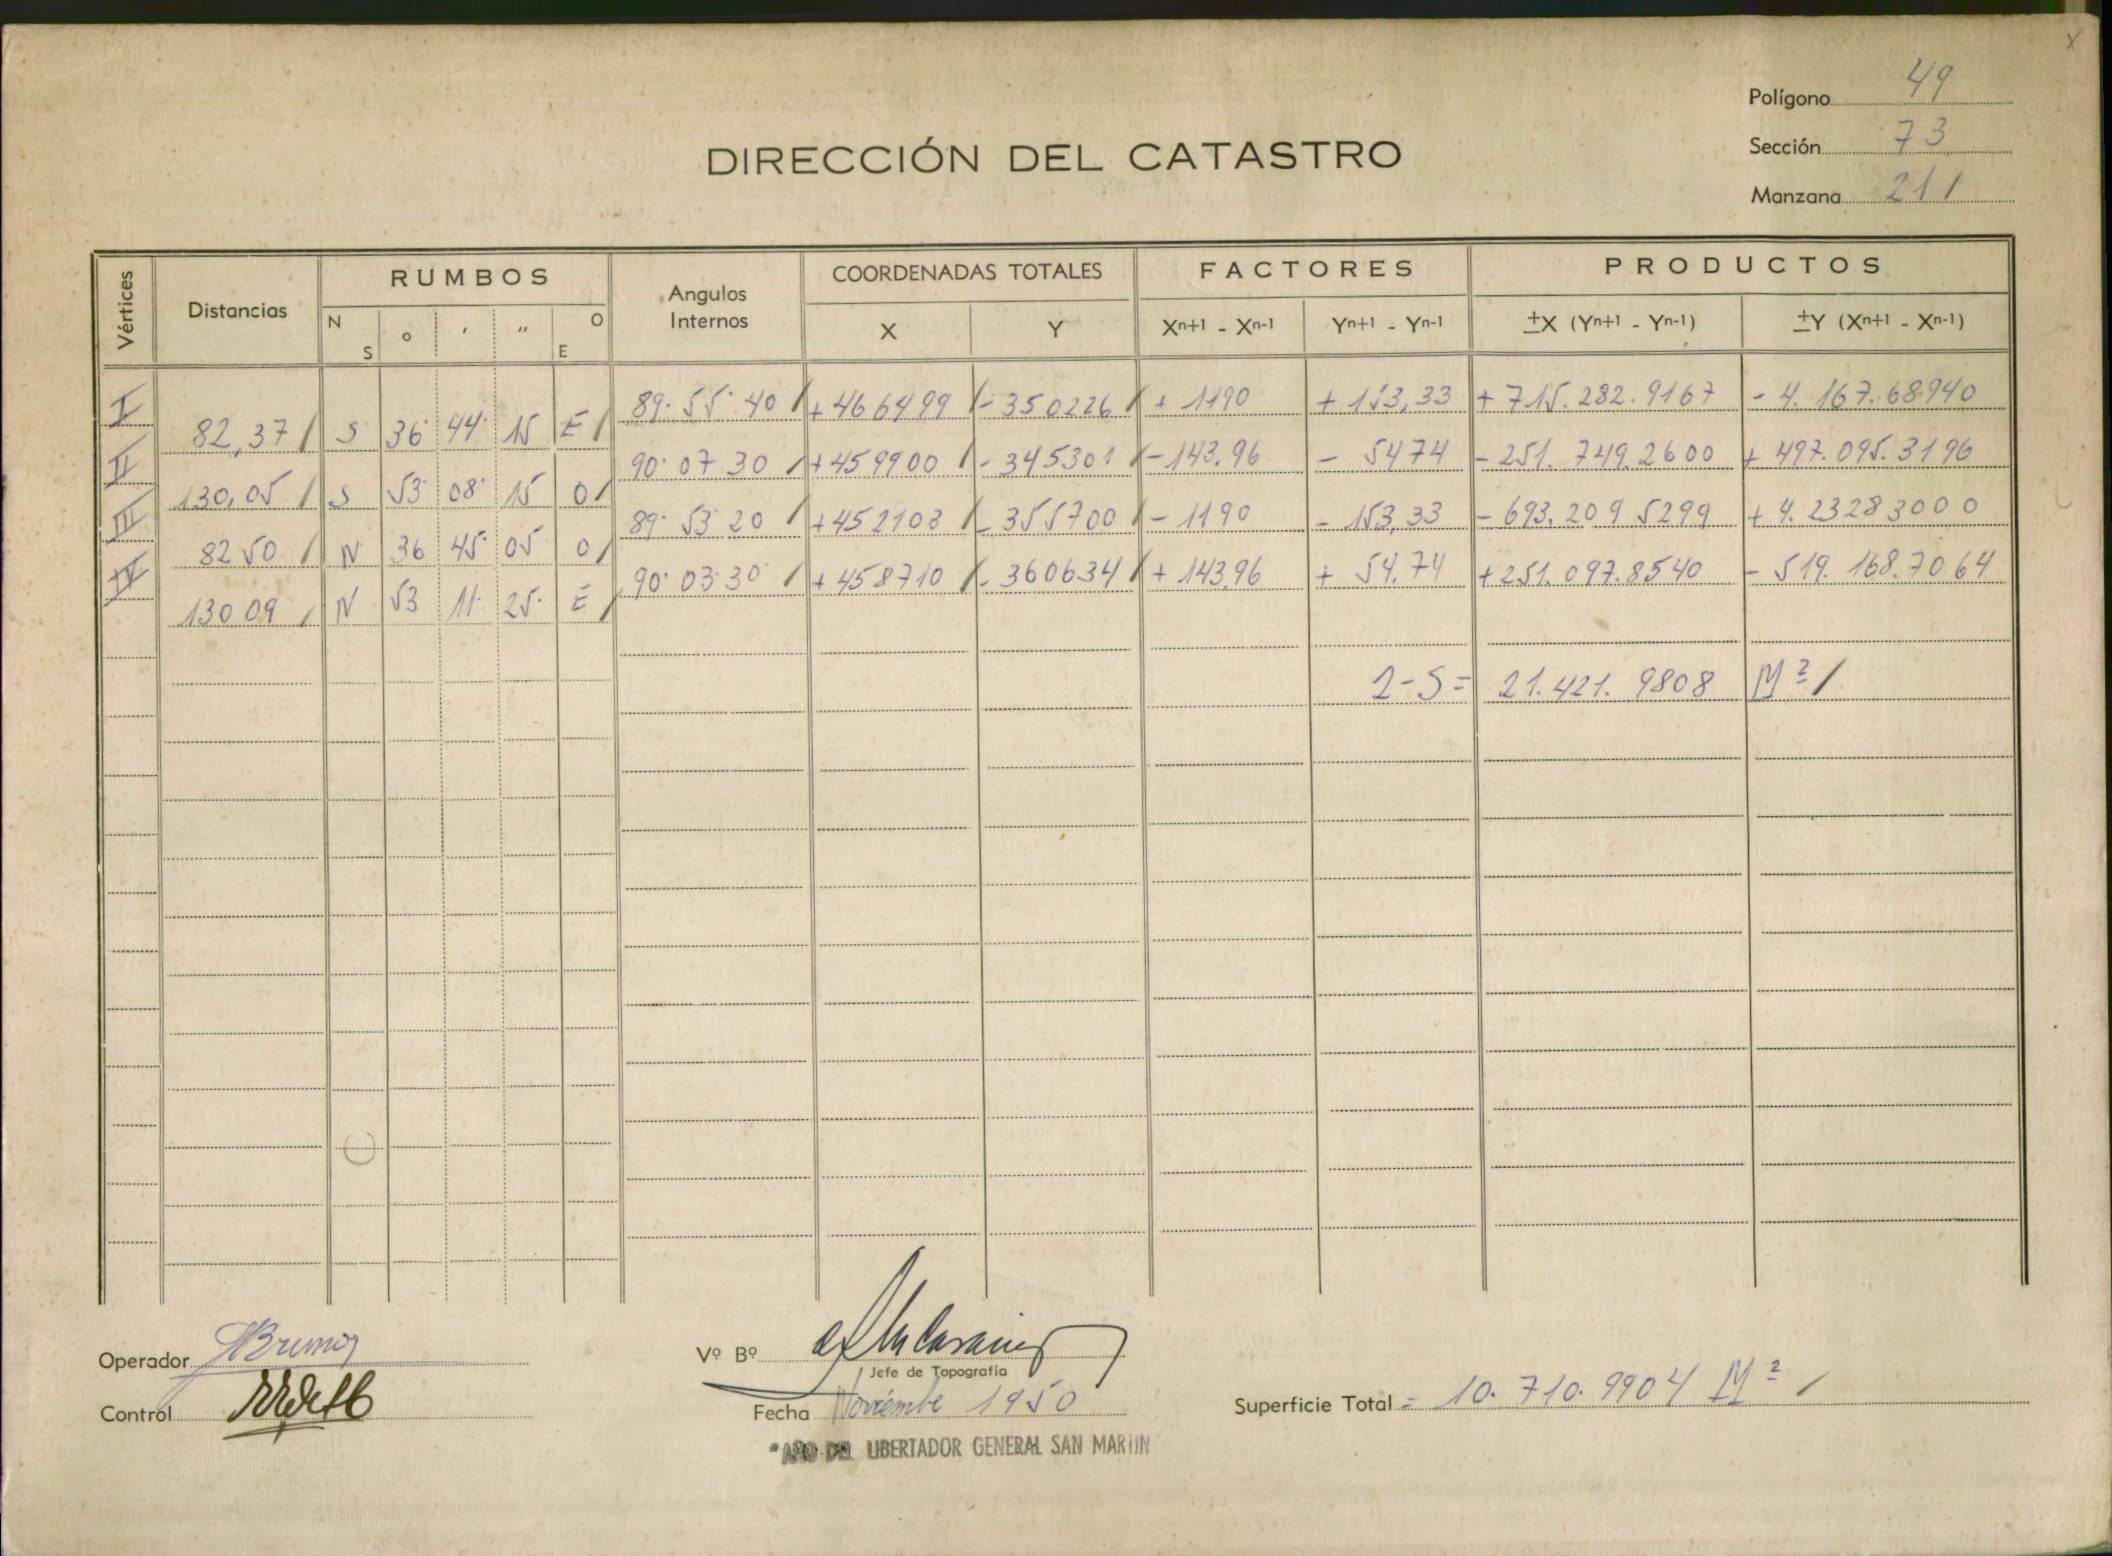 Polígono 49
Sección 73
Manzana 21 /
DIRECCIÓN DEL CATASTRO
Vértices Distancias RUMBOS Angulos Internos COORDENADAS TOTALES FACTORES PRODUCTOS
N S o ' " O E X Y Xn+1 - Xn-1 Yn+1 - Yn-1 ±X (Yn+1 - Yn-1) ±Y (Xn+1 - Xn-1)
I 89° 55' 40 / + 466499 / - 350226 / + 1190 + 153,33 + 715.282.9167 - 4.167.68940
82,37 / S 36° 44' 15 E /
II 90° 07 30 / + 459900 / - 345301 / - 143.96 - 5474 - 251.749.2600 + 497.095.3196
130,05 / S 53° 08' 15 O /
III 89° 53' 20 / + 452103 / - 355700 / - 1190 - 153,33 - 693.209 5299 + 4.23283000
82 50 / N 36 45' 05 O /
IV 90° 03' 30 / + 458710 / - 360634 / + 143,96 + 54.74 + 251.097.8540 - 519.168.7064
130 09 / N 53 11' 25 E /
2-S = 21.421.9808 M² /
Operador
Control
Vº Bº
Jefe de Topografía
Fecha Noviembe 1950
"AÑO DEL LIBERTADOR GENERAL SAN MARTIN
Superficie Total = 10.710.9904 M² /